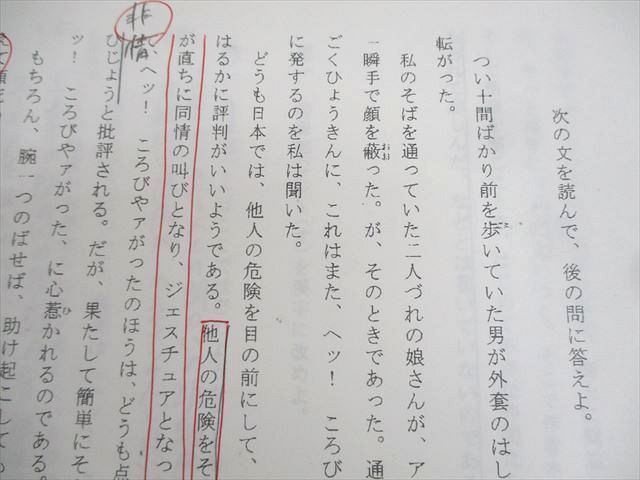 次の文を読んで、後の問に答えよ。
つい十間ばかり前を歩いていた男が外套のはし
転がった。
私のそばを通っていた二人づれの娘さんが、ア
一瞬手で顔を蔽った。が、そのときであった。通
おお
ごくひょうきんに、これはまた、ヘッ! ころび
に発するのを私は聞いた。
どうも日本では、他人の危険を目の前にして、
はるかに評判がいいようである。他人の危険をそ
が直ちに同情の叫びとなり、ジェスチュアとなっ
、ヘッ! ころびやァがったのほうは、どうも点
非情
ひじょうと批評される。だが、果たして簡単にそ
ッ! ころびやァがった、に心惹かれるのである。
ひ
もちろん、腕一つのばせば、助け起こしても